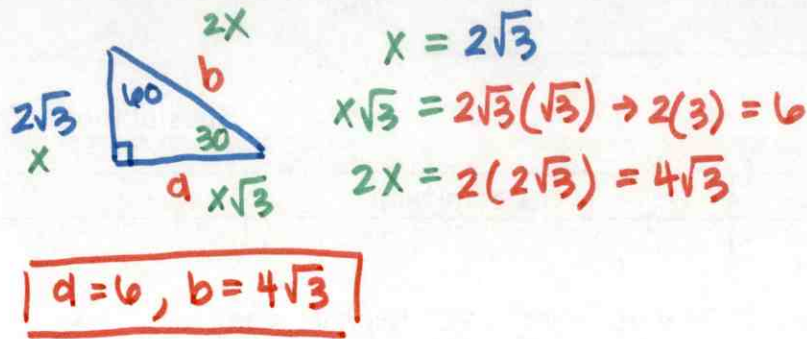 2x
b
60
30
2√3
x
a x√3
x = 2√3
x√3 = 2√3(√3) → 2(3) = 6
2x = 2(2√3) = 4√3
a = 6, b = 4√3